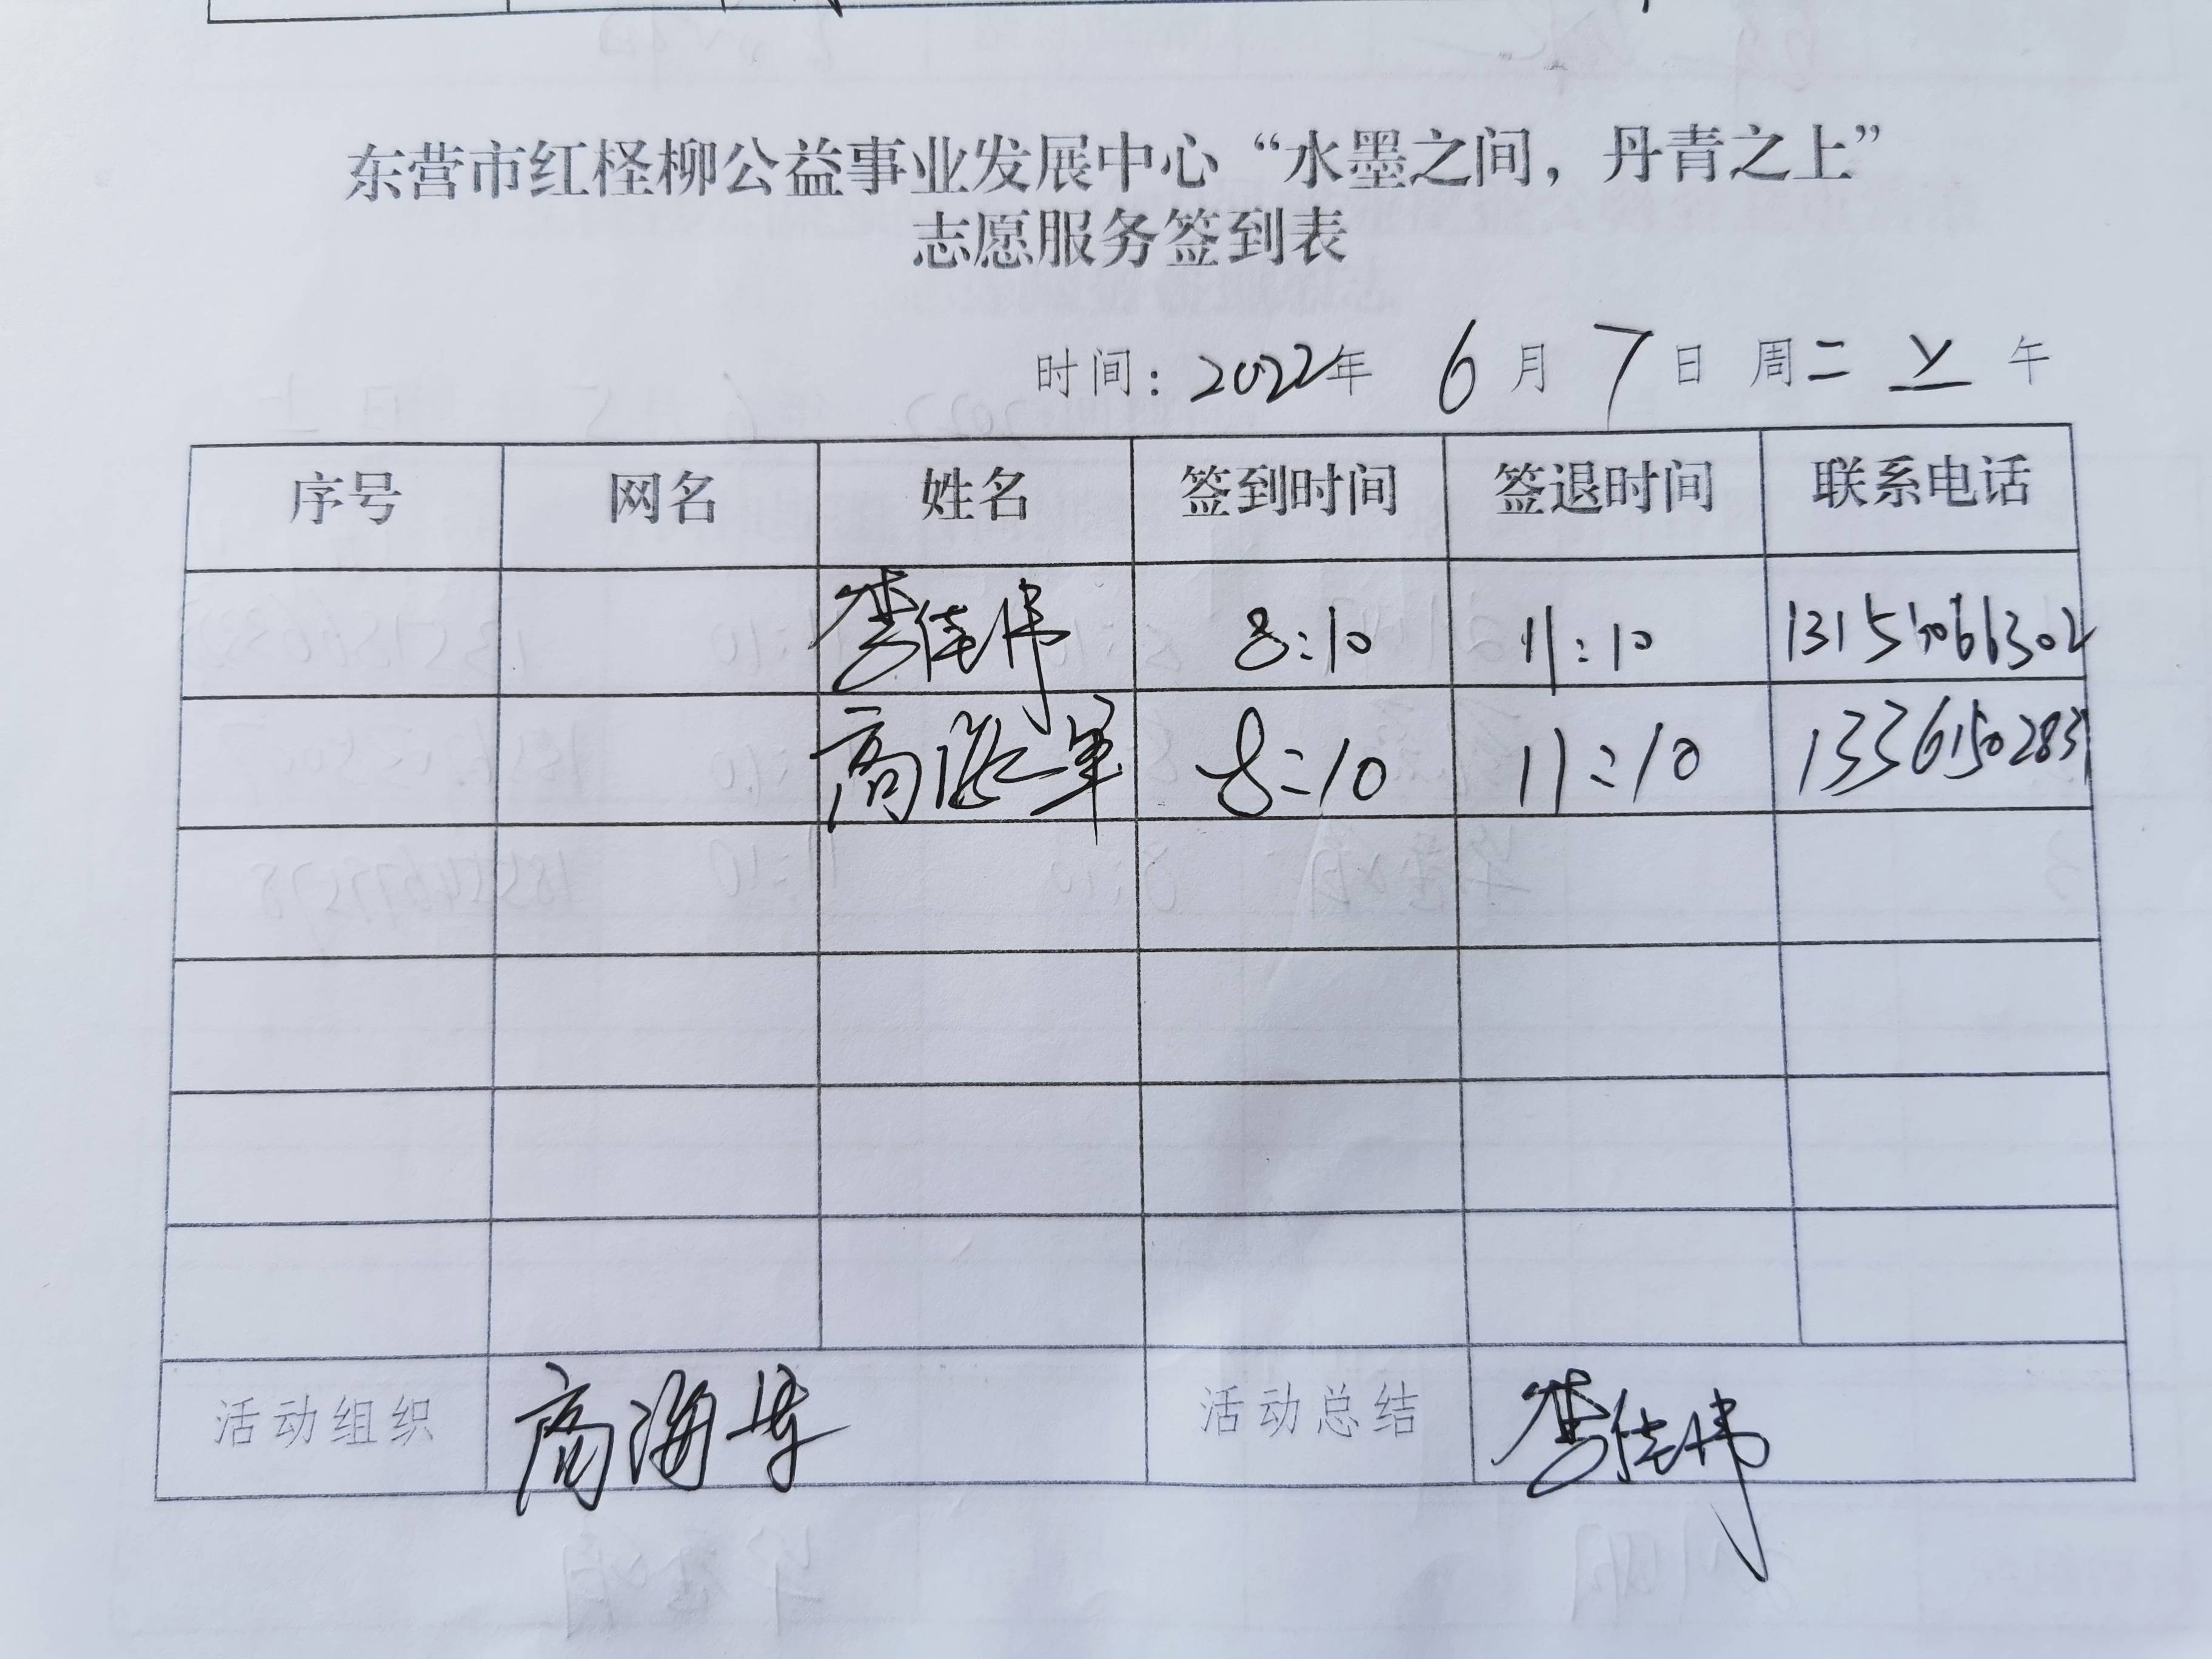 东营市红柽柳公益事业发展中心“水墨之间，丹青之上”
志愿服务签到表
时间：2022年 6月 7日 周二 上 午
序号 网名 姓名 签到时间 签退时间 联系电话
李佳伟 8:10 11:10
高海军 8:10 11:10
活动组织 高海军 活动总结 李佳伟